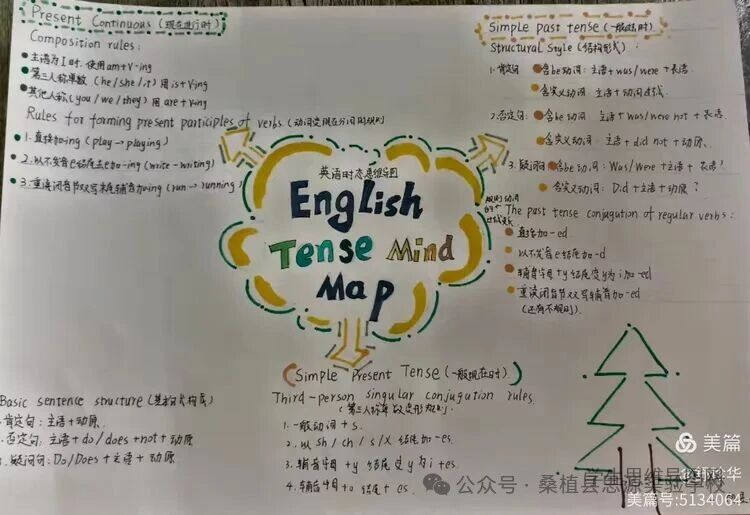 Present Continuous (现在进行时)
Composition rules:
主语为I时,使用am+v-ing
第三人称单数 (he/she/it) 用is+v-ing
其他人称 (you/we/they) 用 are+v-ing
Rules for forming present participles of verbs. (动词变现在分词的规则)
1. 直接加ing (play → playing)
2. 以不发音e结尾去e加-ing (write-writing)
3. 重读闭音节双写末尾辅音加ing (run → running)
Simple past tense (一般过去时)
Structural style (结构形式):
1. 肯定句 含be动词: 主语+was/were+表语
含实义动词: 主语+动词过去式
2. 否定句: 含be动词: 主语+was/were not+表语
含实义动词: 主语+did not+动原.
3. 疑问句 含be动词: Was/were+主语+表语?
含实义动词: Did+主语+动原?
规则动词
的
过去式
The past tense conjugation of regular verbs:
直接加-ed
以不发音e结尾加-d
辅音字母+y结尾变y为i加-ed
重读闭音节双写辅音加-ed
(还有不规则).
英语时态思维导图
English
Tense Mind
Map
Simple Present Tense (一般现在时)
Third-person singular conjugation rules
(第三人称单数变形规则).
1. 一般动词+s.
2. 以sh/ch/s/x 结尾加-es.
3. 辅音字母+y 结尾变y为i+es.
4. 辅音字母+o 结尾+es.
Basic sentence structure (基本句式构成)
肯定句: 主语+动原.
否定句: 主语+do/does+not+动原
疑问句: Do/Does+主语+动原
美篇
公众号·桑植县思源实验学校
美篇号:5134064